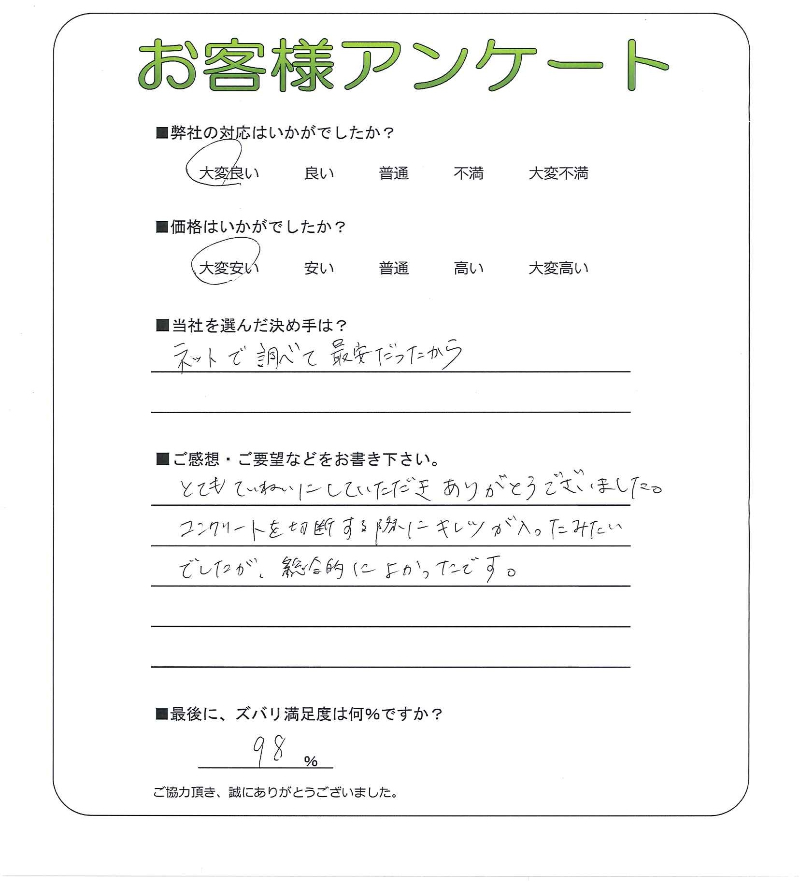 お客様アンケート
■弊社の対応はいかがでしたか？
大変良い 良い 普通 不満 大変不満
■価格はいかがでしたか？
大変安い 安い 普通 高い 大変高い
■当社を選んだ決め手は？
ネットで調べて最安だったから
■ご感想・ご要望などをお書き下さい。
とてもていねいにしていただきありがとうございました。
コンクリートを切断する際にキレツが入ったみたい
でしたが、総合的によかったです。
■最後に、ズバリ満足度は何%ですか？
98 %
ご協力頂き、誠にありがとうございました。